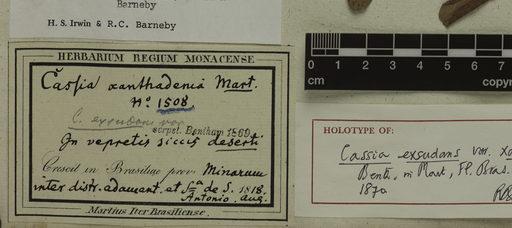 Barneby
H. S. Irwin & R.C. Barneby
HERBARIUM REGIUM MONACENSE
Cassia xanthadenia Mart.
No 1508.
C. exsudans var.
scrpst. Bentham 1869.
In vepretis siccis deserti
Crescit in Brasiliae prov. Minarum
inter distr. adamant. et S.ta de S. 1818.
Antonio. aug.
Martius Iter Brasiliense.
0 1 2 3 4 5 6 7 8
cm
copyr
HOLOTYPE OF:
Cassia exsudans var. xa
Benth, in Mart., Fl. Bras.
1870